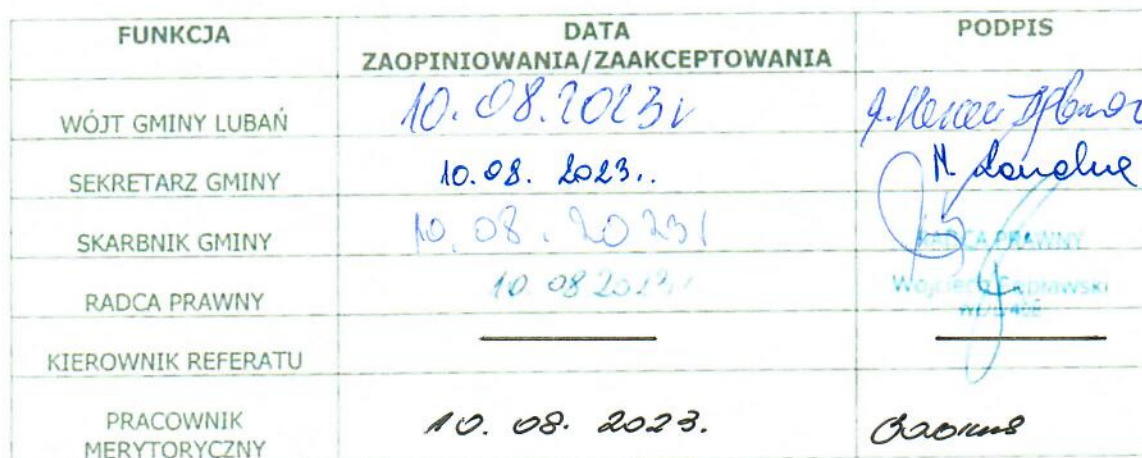 FUNKCJA DATA PODPIS
ZAOPINIOWANIA/ZAAKCEPTOWANIA
WÓJT GMINY LUBAŃ 10.08.2023r
SEKRETARZ GMINY 10.08. 2023r.
SKARBNIK GMINY 10.08.2023r
RADCA PRAWNY
RADCA PRAWNY 10.08 2023r
Wojciech
KIEROWNIK REFERATU
PRACOWNIK
MERYTORYCZNY 10. 08. 2023.